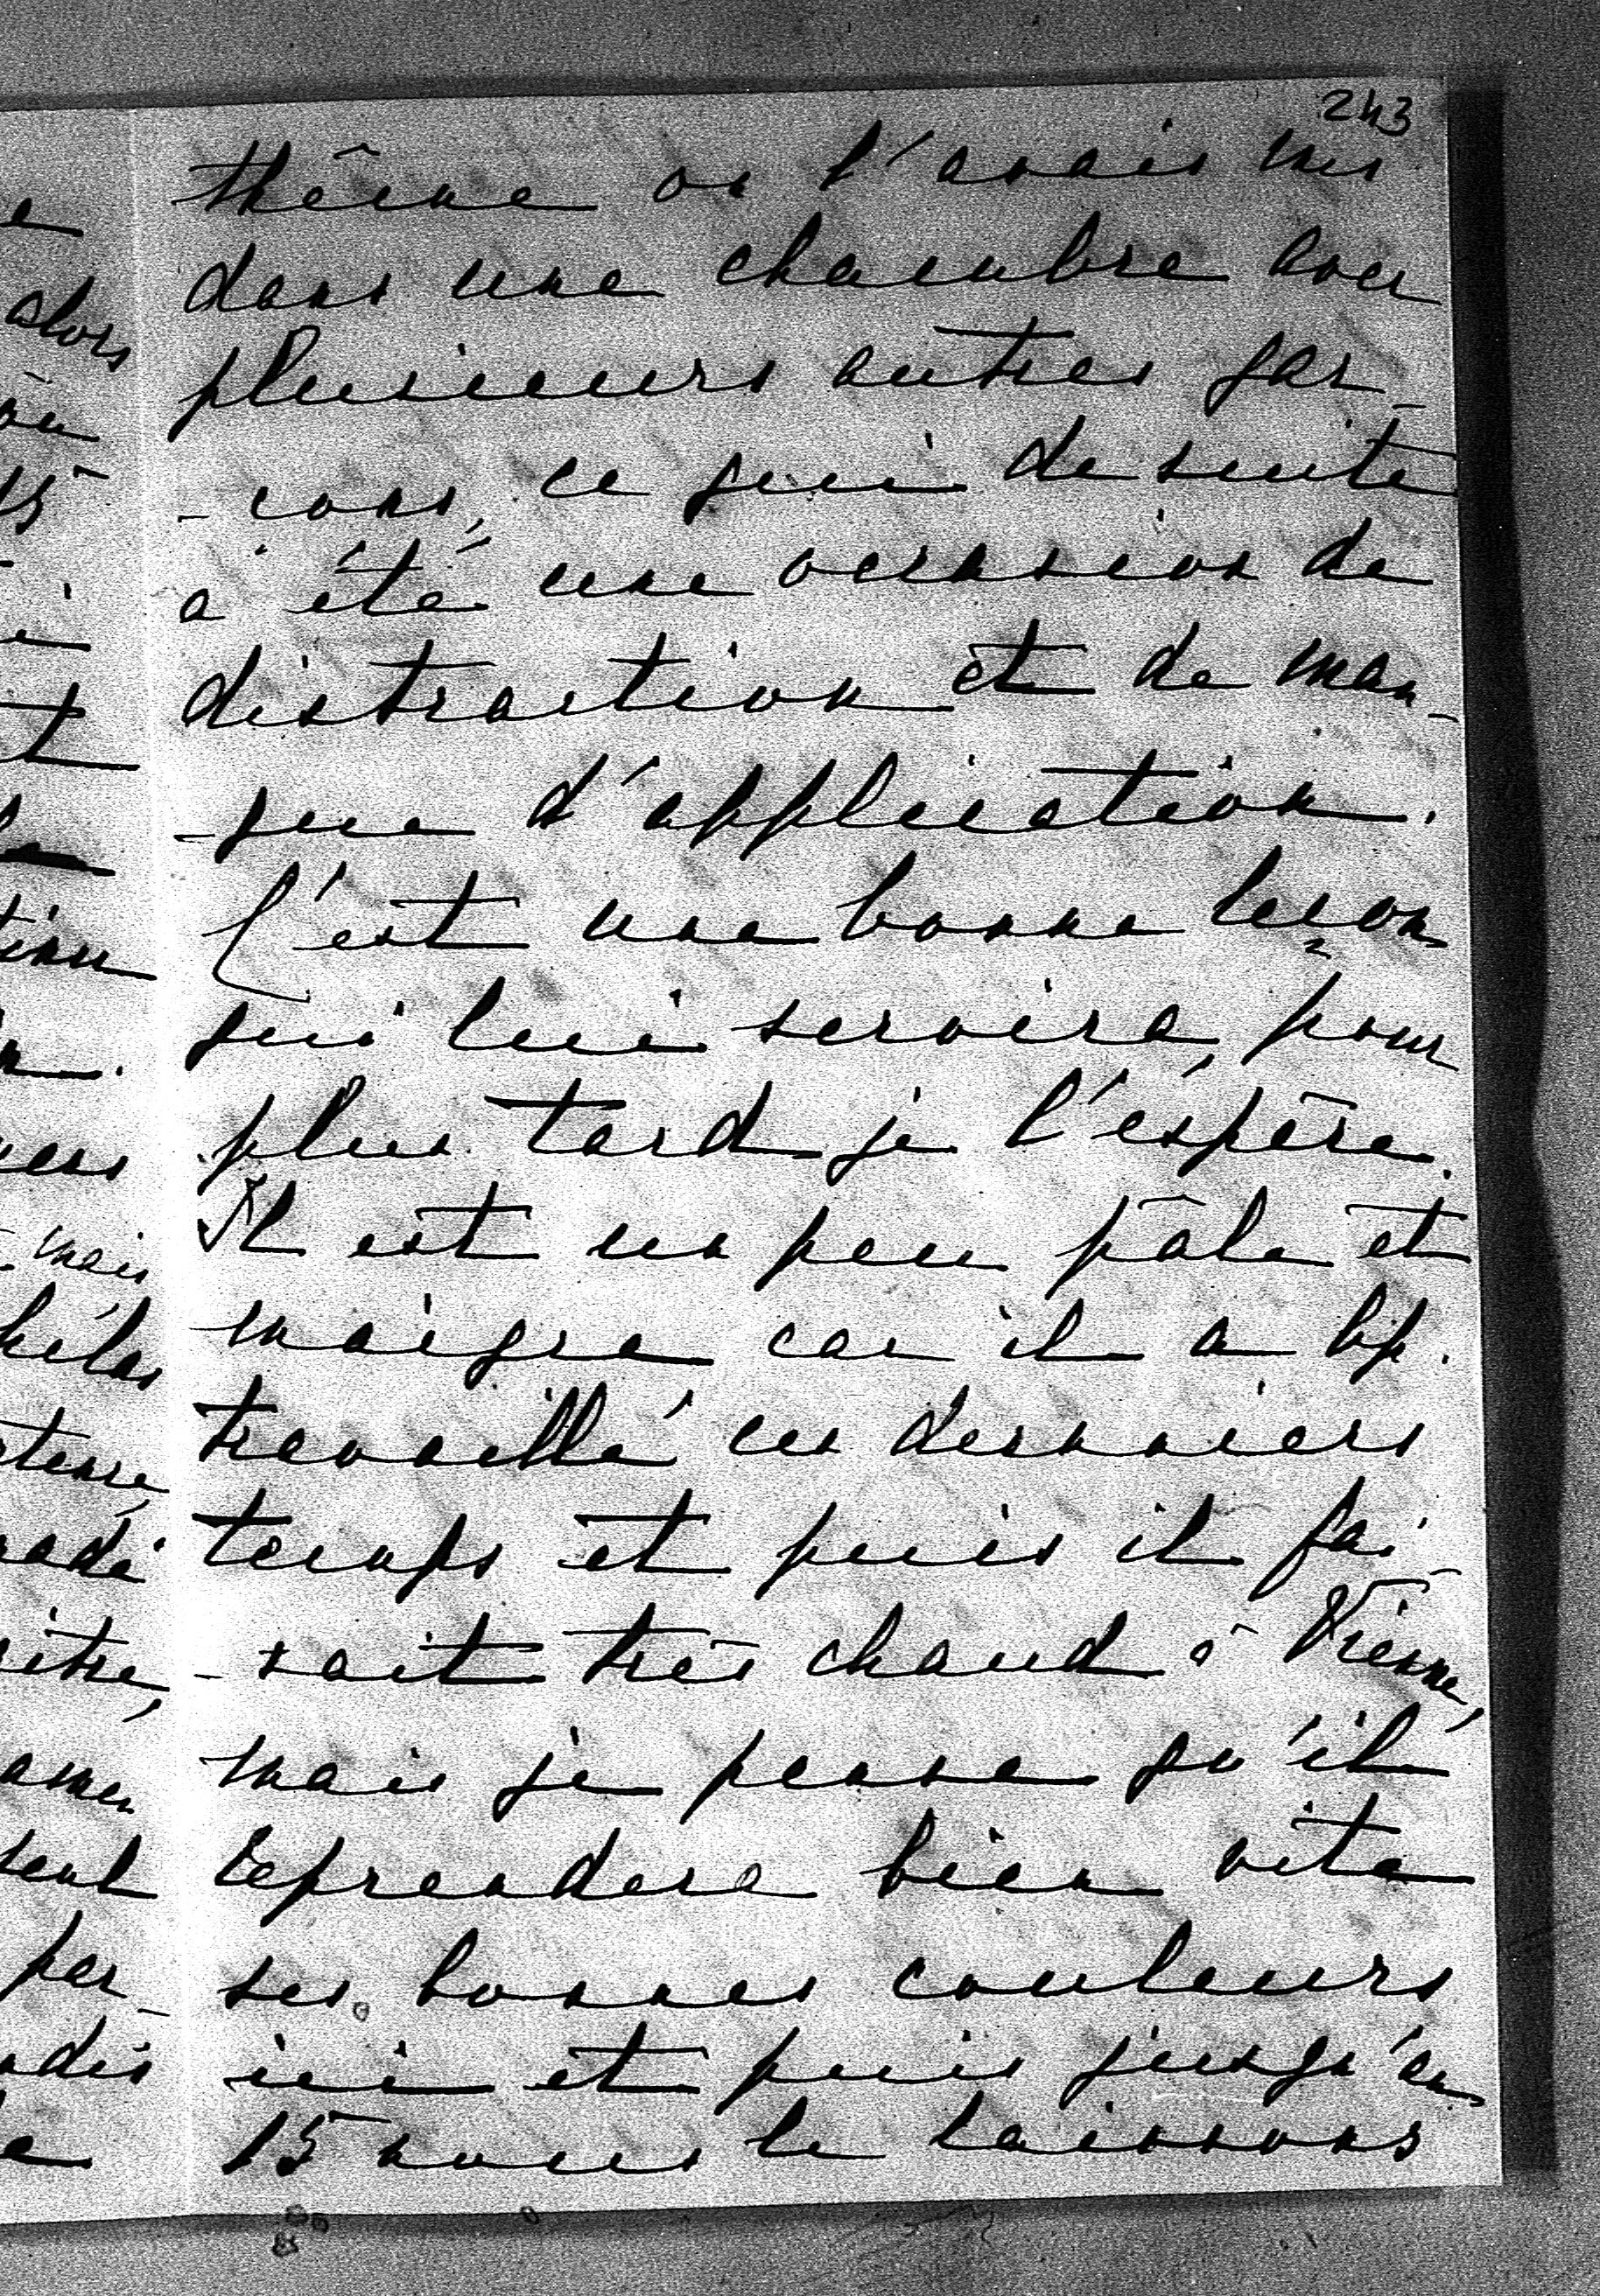 243
thême on l'avais mis
dans une chambre avec
plusieurs autres gar-
-cons, ce qui de suite
a été une occasion de
distraction et de man-
-que d'application.
C'est une bonne leçon
qui lui servira, pour
plus tard je l'éspère.
Il est un peu pâle et
maigre car il a bp.
travaillé ces derniers
temps et puis il fai-
-sait très chaud à Vienne,
mais je pense qu'il
reprendera bien vite
ses bonnes couleurs
ici et puis jusqu'au
15 nous le laissons
alors
15
mais
hélas